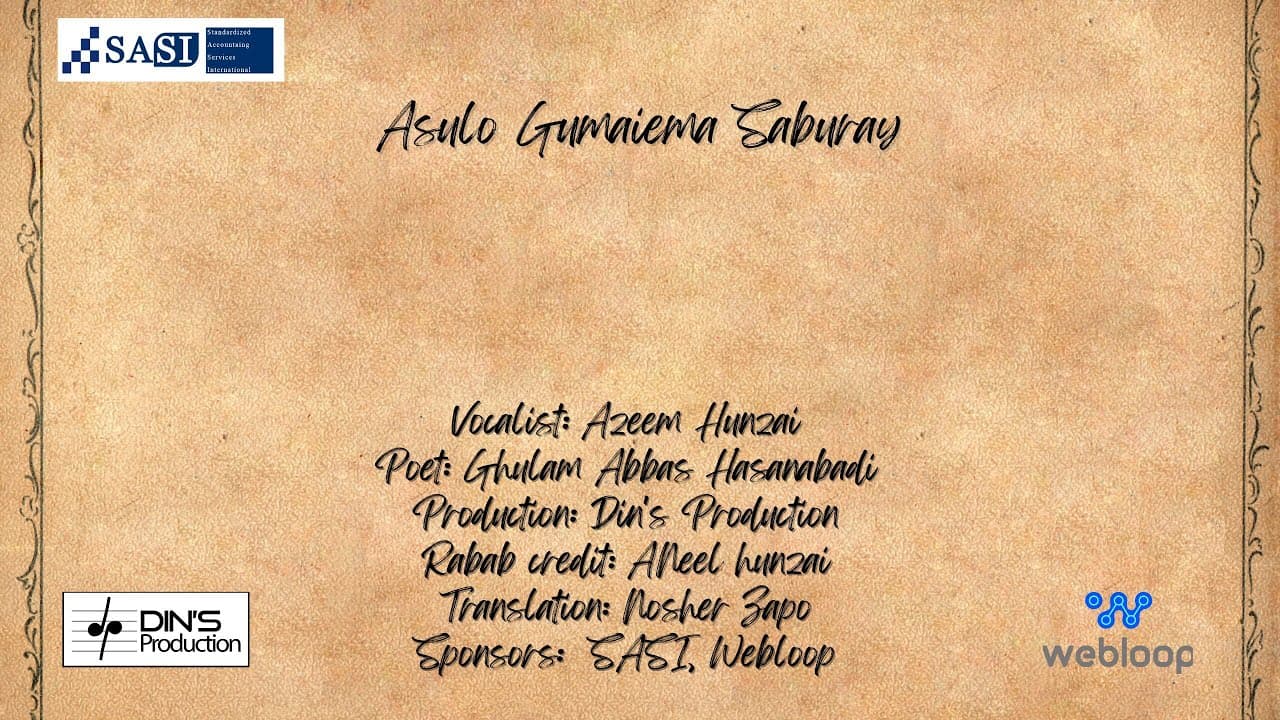 SASI
Standardized
Accountaing
Services
International
Asulo Gumaiema Saburay
Vocalist: Azeem Hunzai
Poet: Ghulam Abbas Hasanabadi
Production: Din's Production
Rabab credit: ANeel hunzai
Translation: Nosher Zapo
Sponsors: SASI, Webloop
DIN'S
Production
webloop